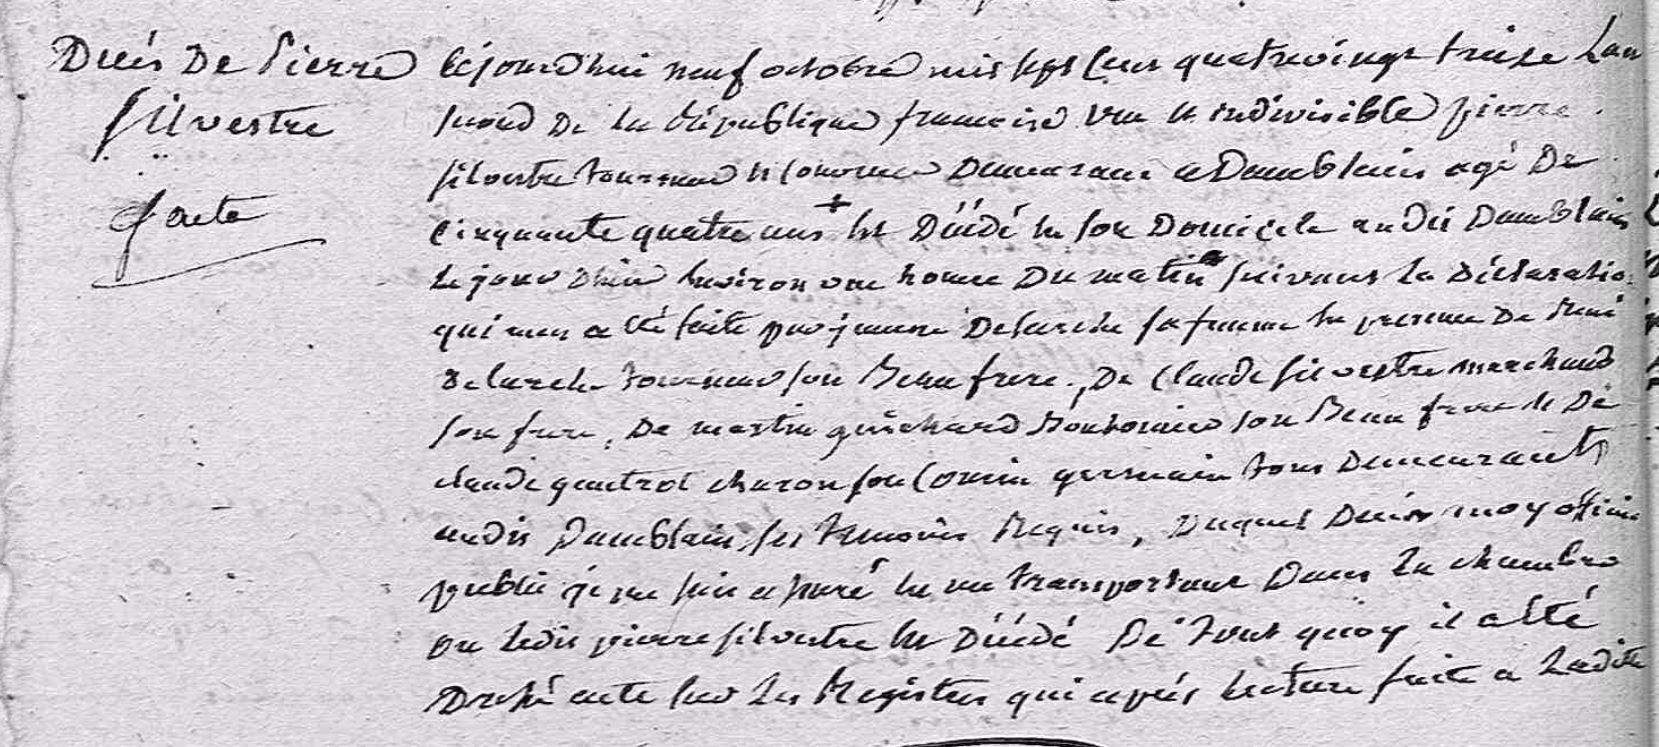 Décés De Pierre
Silvestre
f acte
Cejourdhui neuf octobre mis sept Cens quatrevingt treize Lan
second De la République francaise une et indivisible pierre
silvestre tourneur et Couvreur Demeurant a Damblain agé De
Cinquante quatre ans + est Décédé en son Domicile audit Damblain
Cejourdhui environ une heure Du matin suivant la Déclaratio
qui nous a eté faite par jeanne Delarche sa femme en presence De Remi
Delarche tourneur son Beau frere, De Claude silvestre marchand
son frere, De martin guichard son Beau frere et De
claude gautrot charon son Cousin germain tous Demeurants
audit Damblain ses temoins Requis, Duquel Décés moy officie
public je me suis assuré en me transportant Dans la chambre
ou ledit pierre silvestre est Décédé De tout quoy il a eté
Dressé acte sur les Registres qui après lecture faite a Ladite